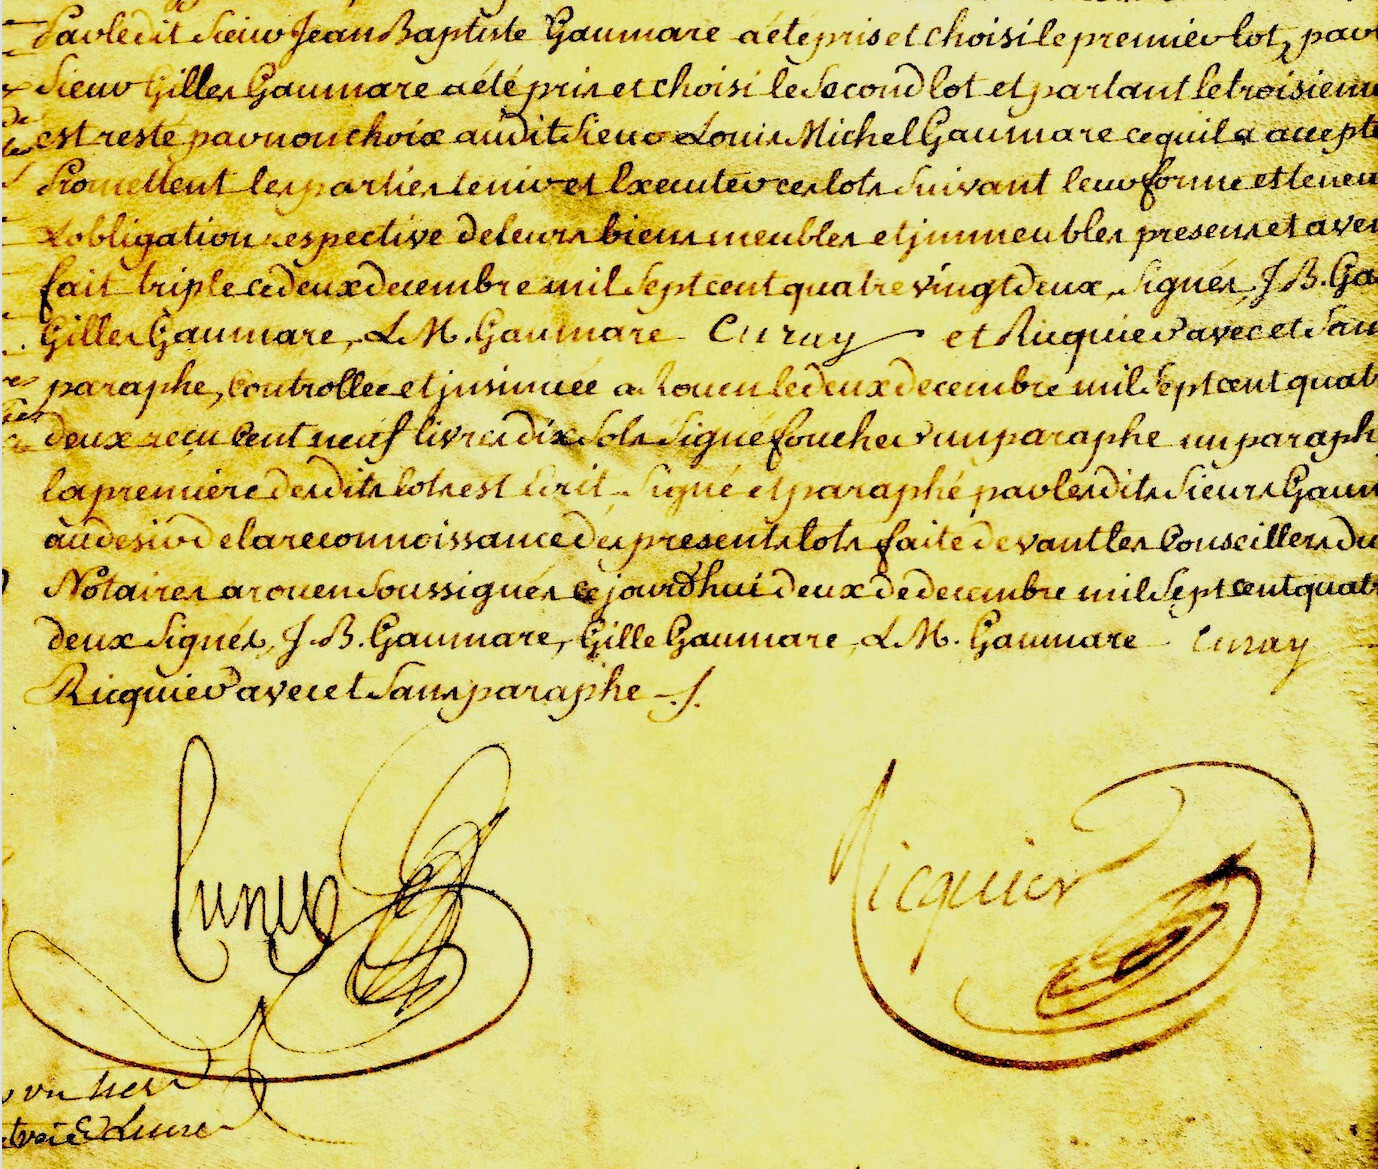 Par ledit Sieur Jean Baptiste Gaumare a été pris et choisi le premier lot, par
Sieur Gilles Gaumare a été pris et choisi le Second lot et partant le troisieme
est resté par non choix audit Sieur Louis Michel Gaumare ce quil a accepté
Promettent les parties tenir et Executer ces lots Suivant leur forme et teneur
L'obligation respective de leurs biens meubles et immeubles presens et avenir
fait triple ce deux decembre mil Sept cent quatre vingt deux, Signés, J. B. Ga
Gilles Gaumare, L M. Gaumare Curay et Ricquier avec et San
paraphe, Controllée et insinuée a Rouen le deux decembre mil Sept cent quat
deux reçu Cent neuf livres dix Sols Signé foucher un paraphe un paraph
la premiere des dits lots est Ecrit Signé et paraphé par les dits Sieurs Gaum
au desir de la reconnoissance des presents lots faite devant les Conseillers du
Notaires a rouen Soussignés ce jourdhui deux de decembre mil Sept cent quat
deux Signés, J. B. Gaumare, Gille Gaumare, L M. Gaumare Curay
Ricquier avec et Sans paraphe
Ricquier